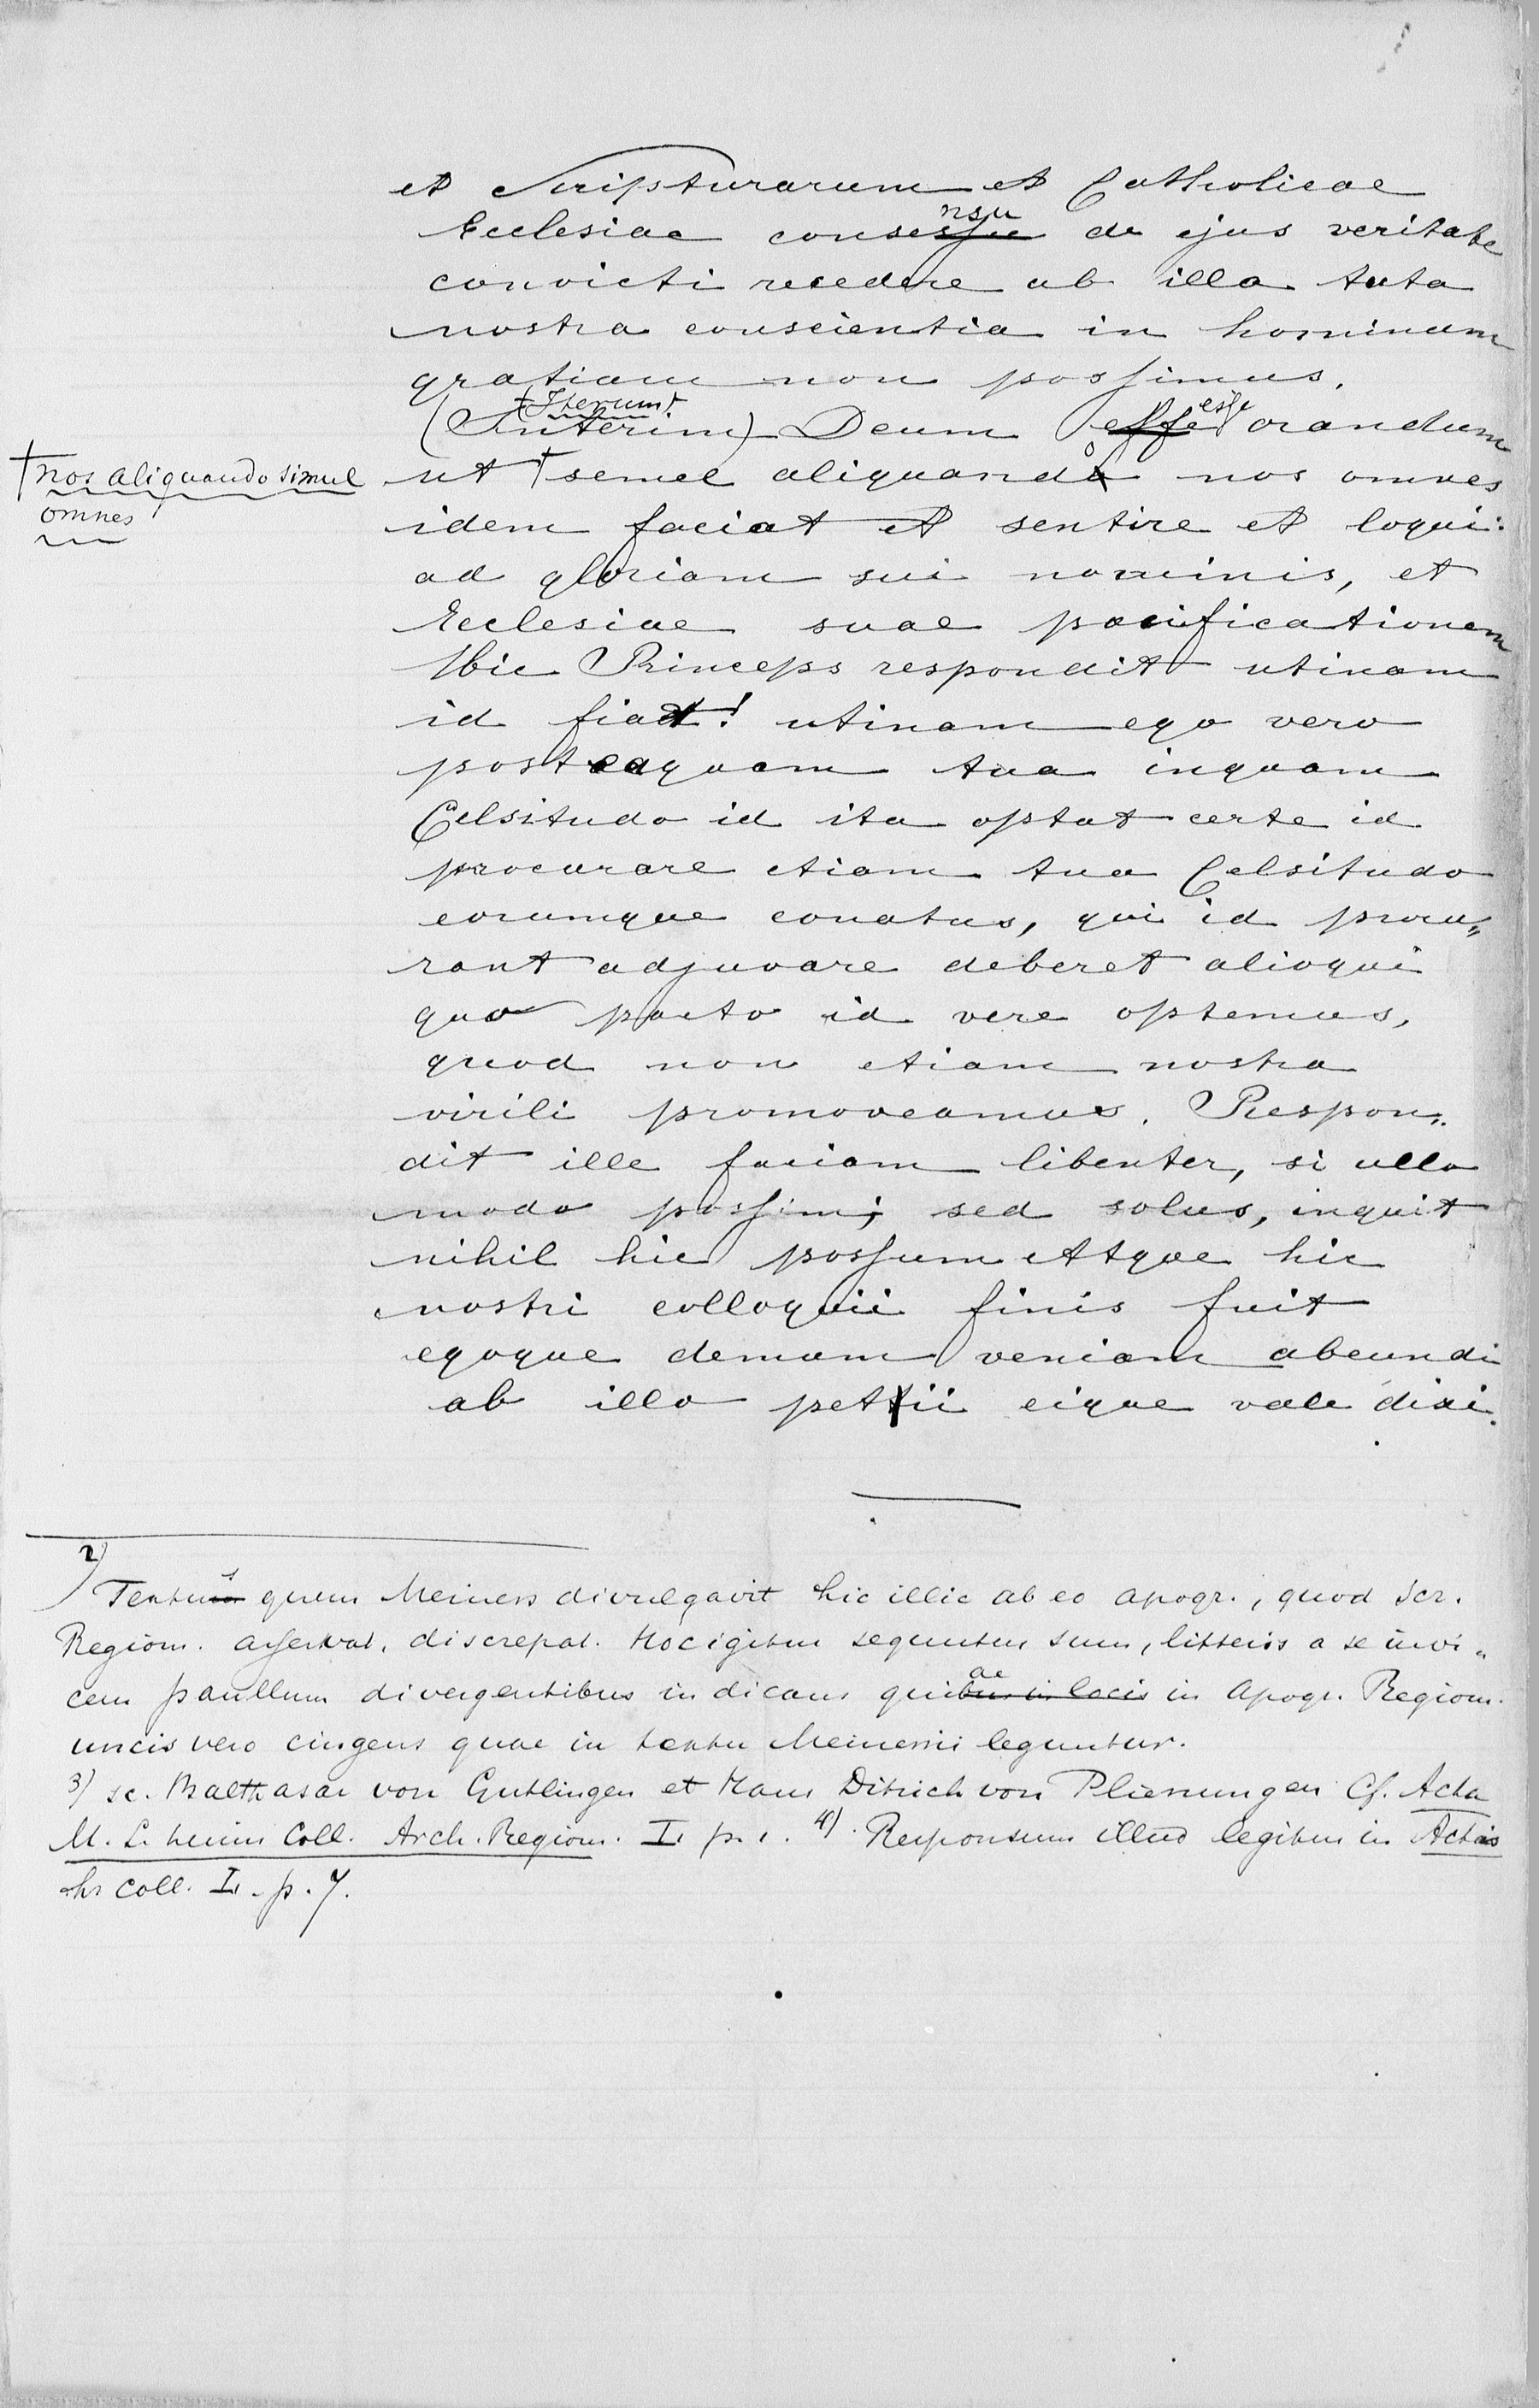 et Scripturarum et Catholicae
nsu
Ecclesiae consessu de ejus veritate
convicti recedere ab illa tuta
nostra conscientia in hominum
gratiam non possimus.
Iterum
(Interim) Deum esse esse orandum
† nos aliquando simul
omnes
ut † semel aliquando nos omnes
idem faciat et sentire et loqui
ad gloriam sui nominis, et
Ecclesiae suae pacificationem
Hic Princeps respondit utinam
id fiat! utinam ego vero
posteaquam tua inquam
Celsitudo id ita optat certe id
procurare etiam tua Celsitudo
eorumque conatus, qui id procu„
rant adjuvare deberet alioqui
quo pacto id vere optemus,
quod non etiam nostra
virili promoveamus. Respon„
dit ille faciam libenter, si ullo
modo possim; sed solus, inquit
nihil hic possum Atque hic
nostri colloquii finis fuit
egoque demum veniam abeundi
ab illo petii eique vale dixi.
2) Textus quem Meiners divulgavit hic illic ab eo apogr., quod Scr.
Regiom. asservat, discrepat. Hoc igitur sequutus sum, litteris a se invi„
ae
cem paullum divergentibus indicans quibus in locis in Apogr. Regiom.
uncis vero cingens quae in textu Meinersii leguntur.
3) sc. Balthasar von Gutlingen et Hans Ditrich von Plienungen Cf. Acta
M. S. hujus Coll. Arch. Regiom. I. p. 1. 4) Responsum illud legitur in Actis
hs Coll. I. p. 7.